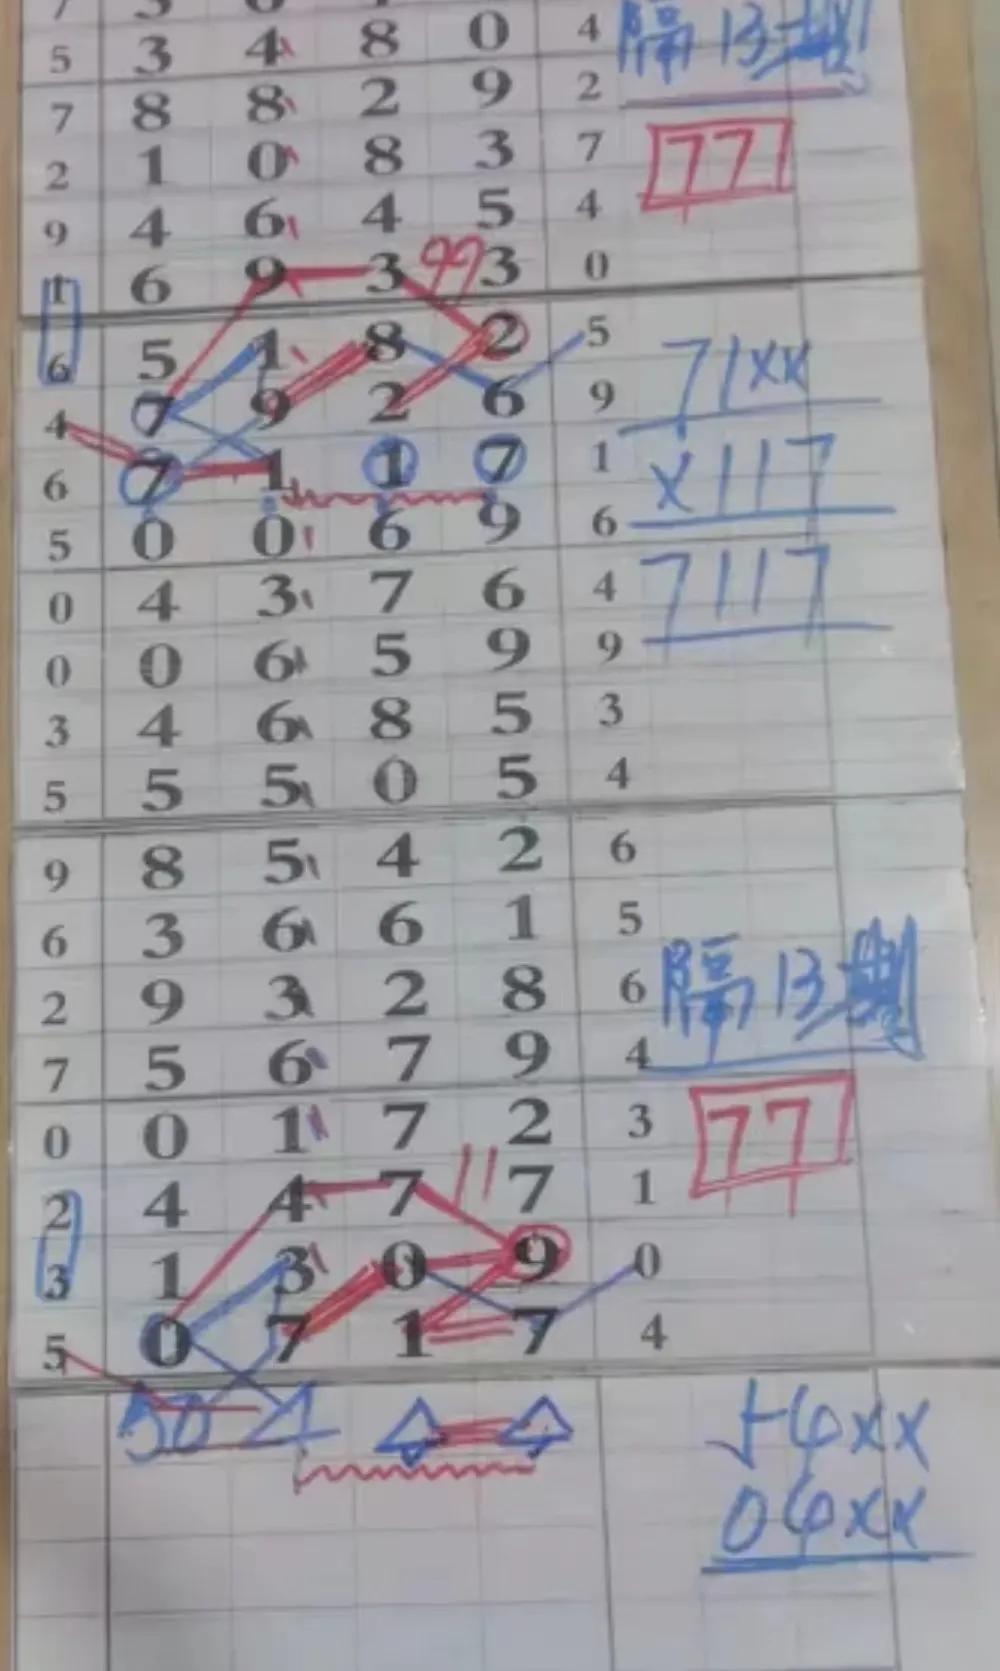 5 3 4 8 0 4 隔13期
7 8 8 2 9 2
2 1 0 8 3 7 77
9 4 6 4 5 4
1 6 9 3 99 3 0
6 5 1 8 2 5 71xx
4 7 9 2 6 9
6 7 1 1 7 1 x117
5 0 0 6 9 6
0 4 3 7 6 4 7117
0 0 6 5 9 9
3 4 6 8 5 3
5 5 5 0 5 4
9 8 5 4 2 6
6 3 6 6 1 5
2 9 3 2 8 6 隔13期
7 5 6 7 9 4
0 0 1 7 2 3 77
2 4 4 7 11 7 1
3 1 3 0 9 0
5 0 7 1 7 4
50 4xx
04xx